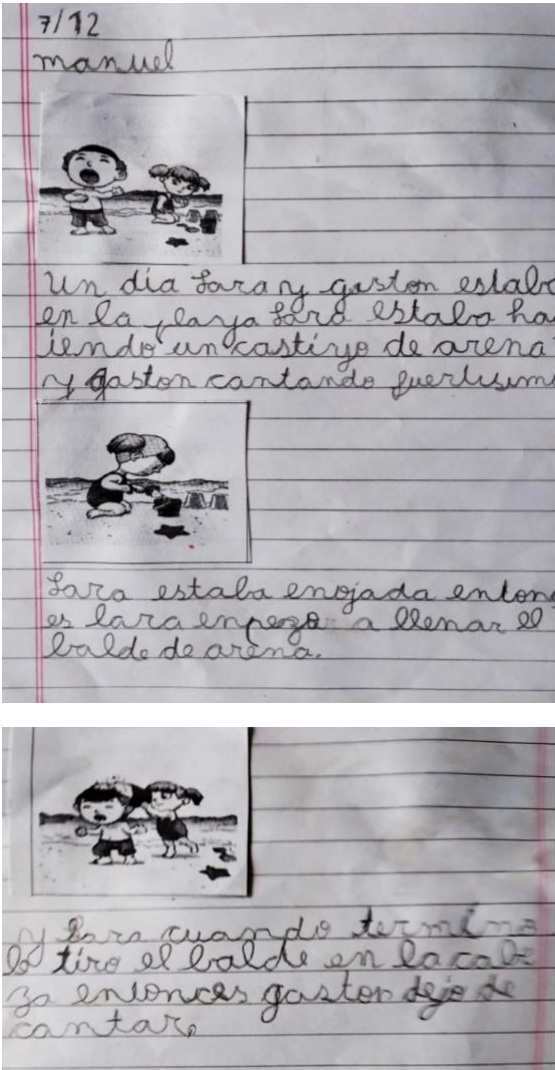 7/12
manuel
Un día Sara y gaston estaba
en la playa Sara estaba ha
iendo un castiyo de arena
y gaston cantando fuertisim
Sara estaba enojada enton
es lara enpezo a llenar el
balde de arena.
y Sara cuando termino
lo tiro el balde en la cabe
za entonces gaston dejo de
cantar.